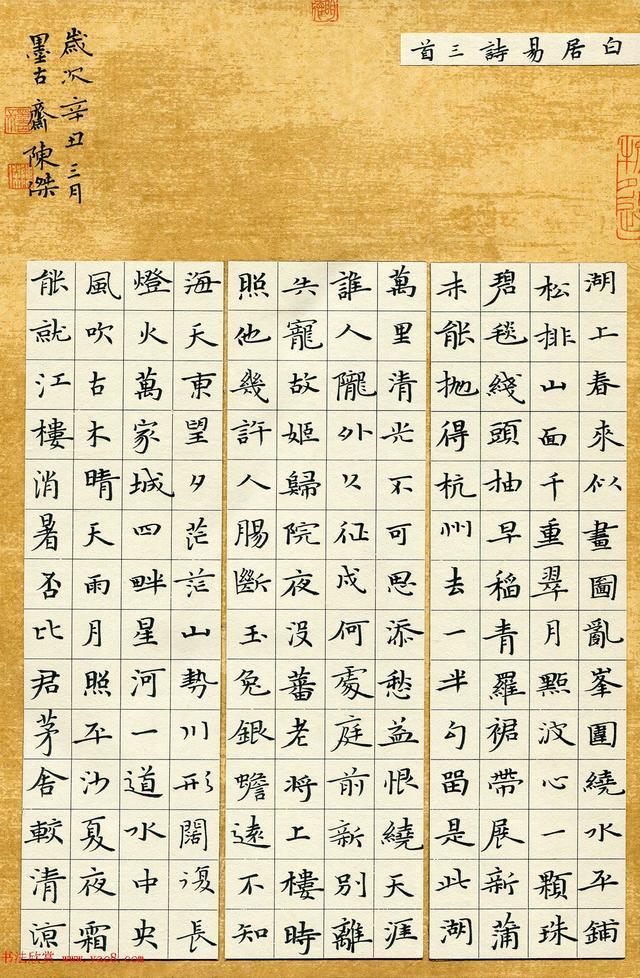 白居易詩三首
湖上春來似畫圖亂峯圍繞水平鋪
松排山面千重翠月點波心一顆珠
碧毯綫頭抽早稻青羅裙帶展新蒲
未能拋得杭州去一半勾留是此湖
萬里清光不可思添愁益恨繞天涯
誰人隴外久征戍何處庭前新別離
失寵故姬歸院夜沒蕃老將上樓時
照他幾許人腸斷玉兔銀蟾遠不知
海天東望夕茫茫山勢川形闊復長
燈火萬家城四畔星河一道水中央
風吹古木晴天雨月照平沙夏夜霜
能就江樓消暑否比君茅舍較清涼
歲次辛丑三月
墨古齋陳傑
书法欣赏 www.yac8.com